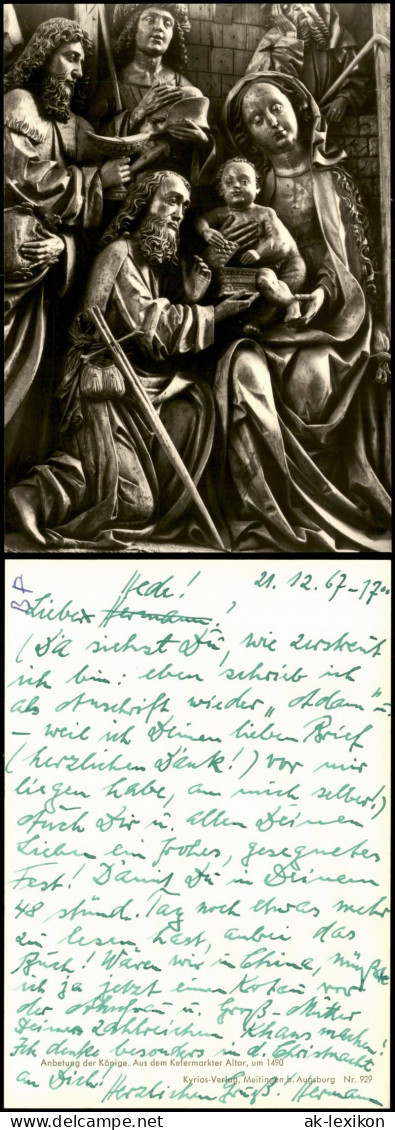 Hede! 21.12.67-17⁰⁰
Lieber Hermann!
(Da siehst Du, wie zerstreut
ich bin: eben schrieb ich
als Anschrift wieder "Adam" u.
- weil ich Deinen lieben Brief
(herzlichen Dank!) vor mir
liegen habe, an mich selber!)
Auch Dir u. allen Deinen
Lieben ein frohes, gesegnetes
Fest! Damit Du in Deinem
48 stünd. Tag noch etwas mehr
zu lesen hast, anbei das
Buch! Wären wir in China, müßte
ich ja jetzt einen Kotau vor
der Ahnfrau u. Groß-Mutter
Deines zahlreichen Khans machen!
Ich denke besonders in d. Christnacht
Anbetung der Könige. Aus dem Kefermarkter Altar, um 1490
an Dich! Herzlichen Gruß. Hermann
Kyrios-Verlag, Meitingen b. Augsburg Nr. 929
ak-lexikon
© DELCAMPE.NET